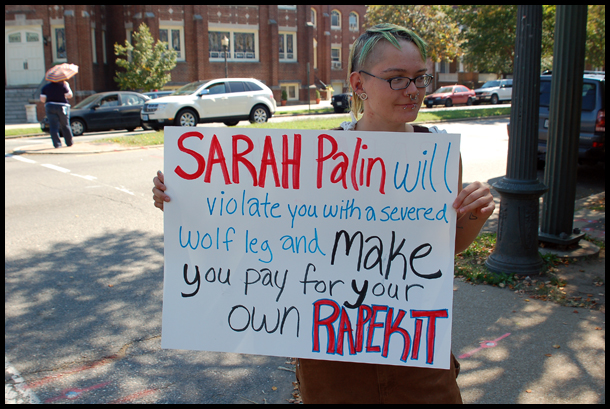 SARAH Palin will
violate you with a severed
wolf leg and MAKE
you pay for your
own RAPEKIT